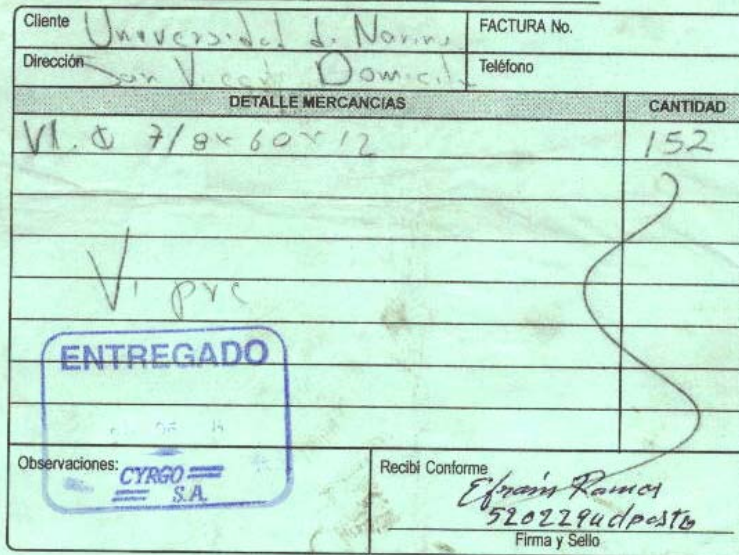 Cliente Universidad de Nariño FACTURA No.
Dirección San Vicente Domicilio Teléfono
DETALLE MERCANCÍAS CANTIDAD
VI. 7/8 x 60 x 12 152
ENTREGADO
Observaciones: CYRGO S.A.
Recibí Conforme
Efraín Ramos
Firma y Sello